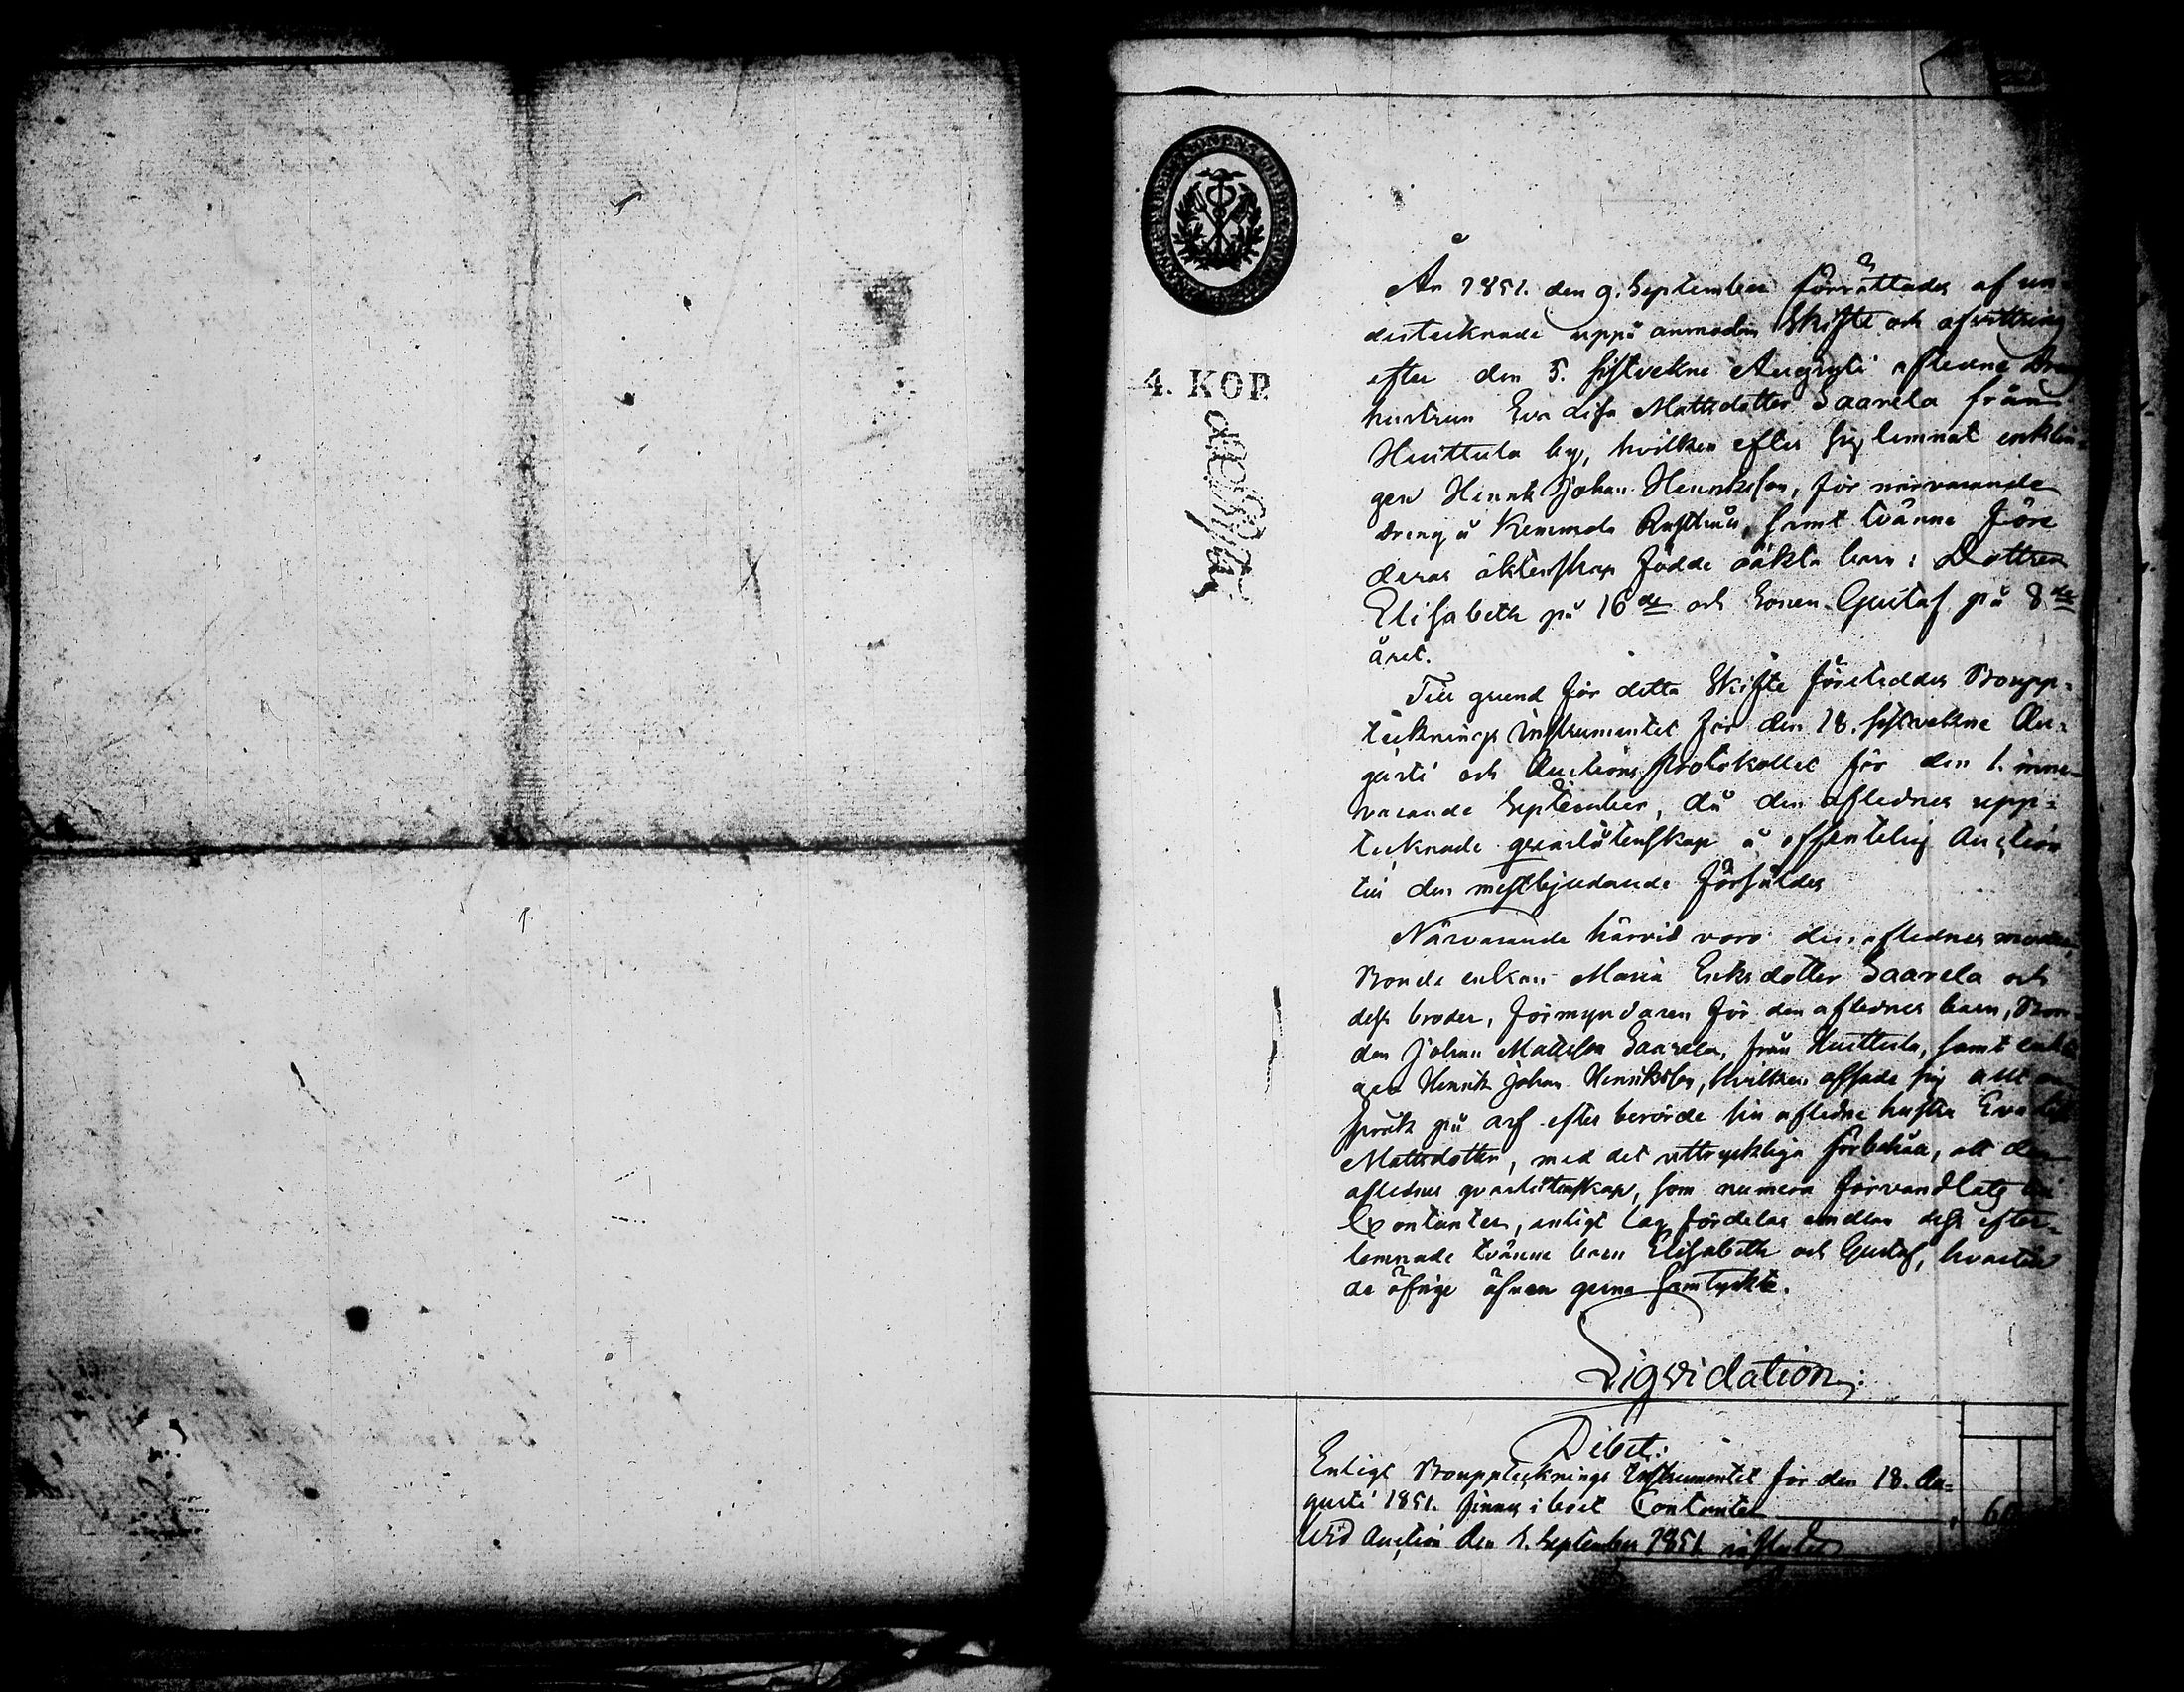 4. KOP.
År 1851. den 9. September förrättades af un-
dertecknade uppå anmodan Skifte och afvittring
efter den 5. sistvekne Augusti aflidne Dreng
hustrun Eva Lisa Mattsdotter Saarela från
Huittula by, hvilken efter sig lemnat enklin-
gen Henrik Johan Henriksson, för närvarande
dreng å Rusthåll, samt tvänne före
deras äktenskap födde oäkta barn: Dottren
Elisabeth på 16de och Sonen Gustaf på 8de
året.
Till grund för detta Skifte företeddes Boupp-
teknings Instrumentet för den 18. sistvekne Au-
gusti och Auctions Protokollet för den 1. inne-
varande September, då den aflednes upp-
tecknade qvarlåtenskap å offentelig Auction
till den mestbjudande försåldes
Närvarande härvid voro den aflednes moder,
Bonde enkan Maria Eriksdotter Saarela och
dess broder, förmyndaren för den aflednes barn, Bon-
den Johan Mattsson Saarela, från Huittula, samt enklin-
gen Henrik Johan Henriksson, hvilken afsade sig allt an-
språk på arf efter berörde sin afledne hustru Eva Lisa
Mattsdotter, med det uttryckliga förbehåll, att den
aflednes qvarlåtenskap, som numera förvandlats till
Contanter, enligt lag fördelas emellan dess efter-
lemnade tvänne barn Elisabeth och Gustaf, hvartill
de öfrige äfven gerna samtyckte.
Liqvidation:
Debet:
Enligt Bouppteknings Instrumentet för den 18. Au-
gusti 1851. finnes i boet Contanter
Vid Auction den 1. September 1851